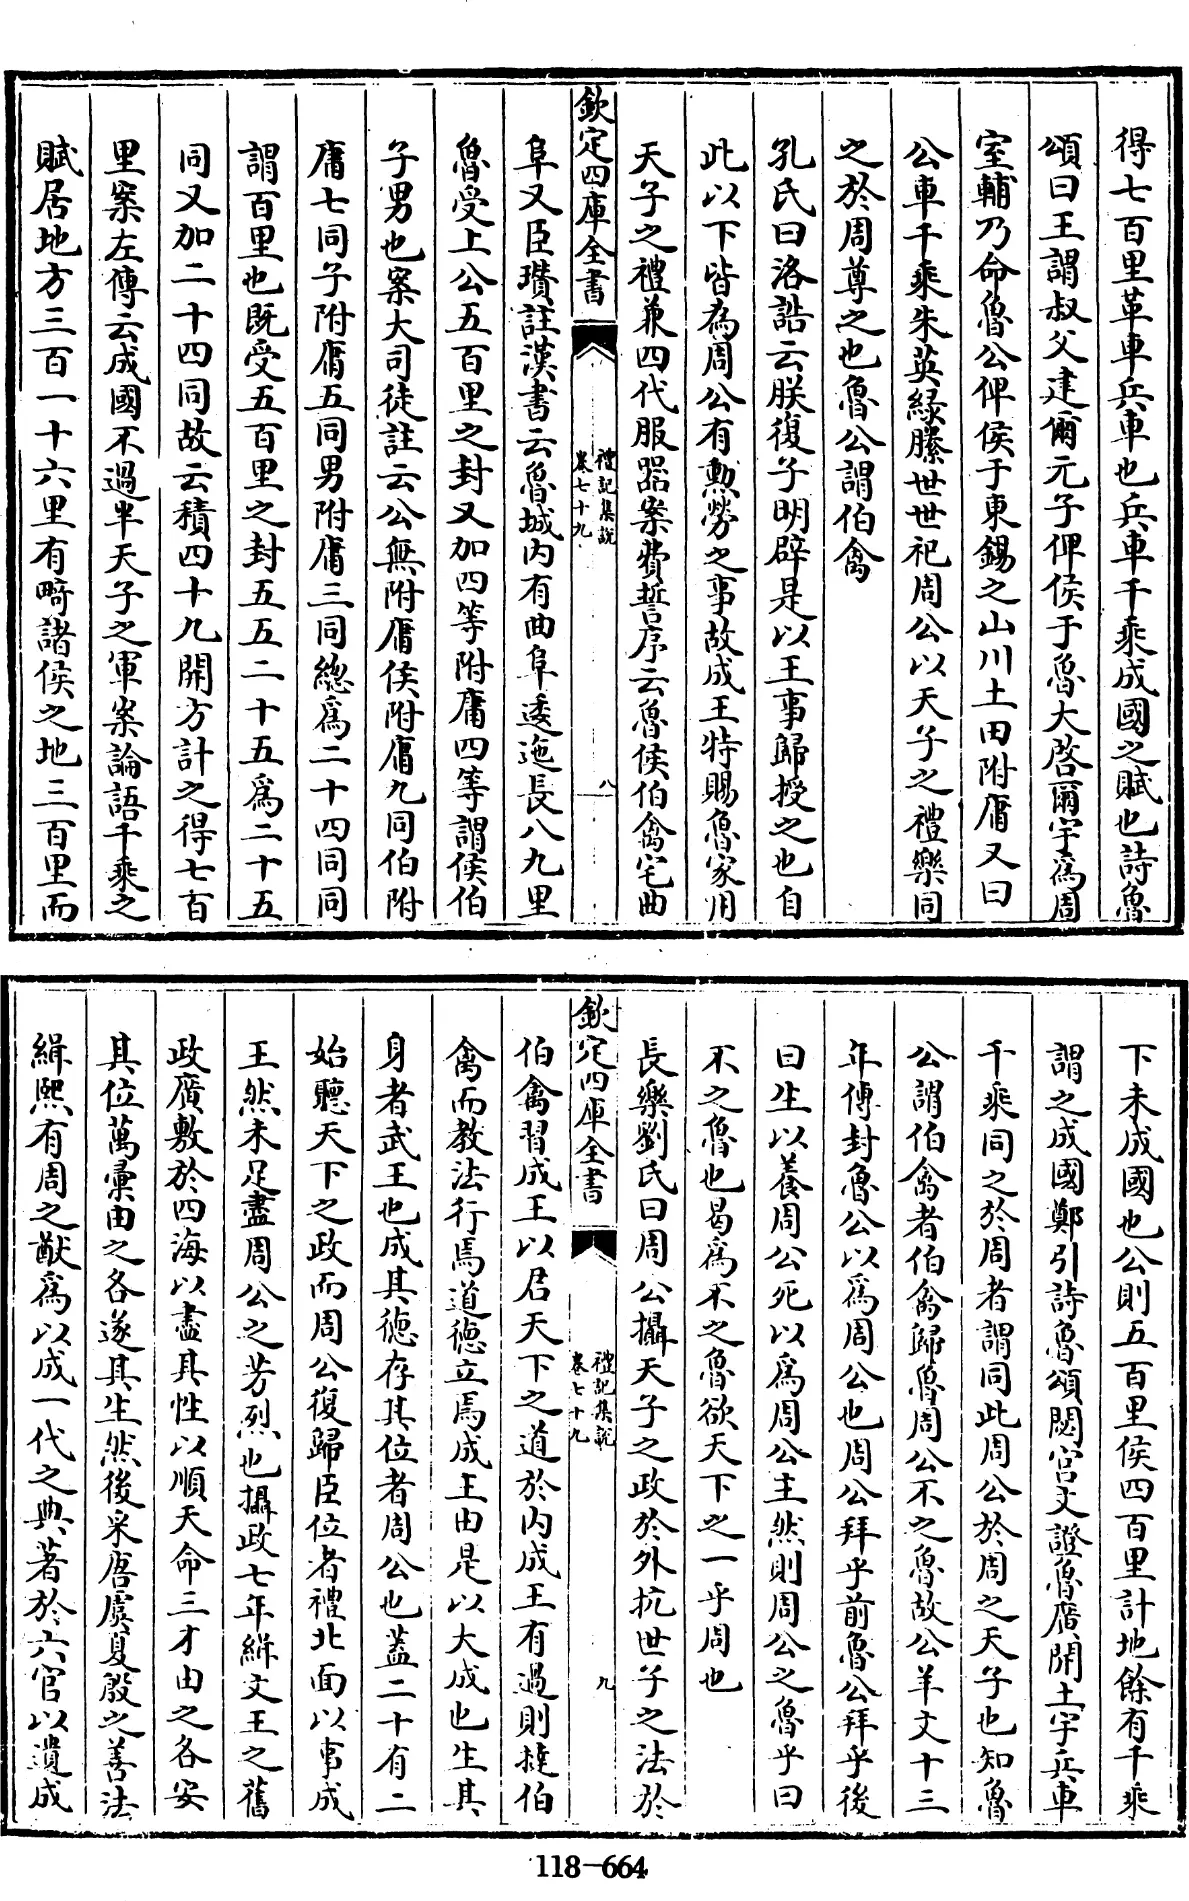 得七百里革車兵車也兵車千乘成國之賦也詩魯
頌曰王謂叔父建爾元子俾侯于魯大啓爾宇爲周
室輔乃命魯公俾侯于東錫之山川土田附庸又曰
公車千乘朱英綠縢世世祀周公以天子之禮樂同
之於周尊之也魯公謂伯禽
孔氏曰洛誥云朕復子明辟是以王事歸授之也自
此以下皆為周公有勲勞之事故成王特賜魯家用
天子之禮兼四代服器案費誓序云魯侯伯禽宅曲
欽定四庫全書
禮記集說
卷七十九
八
阜又臣瓚註漢書云魯城内有曲阜逶迤長八九里
魯受上公五百里之封又加四等附庸四等謂侯伯
子男也案大司徒註云公無附庸侯附庸九同伯附
庸七同子附庸五同男附庸三同總爲二十四同同
謂百里也既受五百里之封五五二十五爲二十五
同又加二十四同故云積四十九開方計之得七百
里案左傳云成國不過半天子之軍案論語千乘之
賦居地方三百一十六里有畸諸侯之地三百里而
下未成國也公則五百里侯四百里計地餘有千乘
謂之成國鄭引詩魯頌閟宫文證魯廣開土宇兵車
千乘同之於周者謂同此周公於周之天子也知魯
公謂伯禽者伯禽歸魯周公不之魯故公羊文十三
年傳封魯公以爲周公也周公拜乎前魯公拜乎後
曰生以養周公死以爲周公主然則周公之魯乎曰
不之魯也曷爲不之魯欲天下之一乎周也
長樂劉氏曰周公攝天子之政於外抗世子之法於
欽定四庫全書
禮記集說
卷七十九
九
伯禽習成王以君天下之道於内成王有過則撻伯
禽而教法行焉道德立焉成王由是以大成也生其
身者武王也成其德存其位者周公也蓋二十有二
始聽天下之政而周公復歸臣位者禮北面以事成
王然未足盡周公之芳烈也攝政七年緝文王之舊
政廣敷於四海以盡其性以順天命三才由之各安
其位萬彙由之各遂其生然後采唐虞夏殷之善法
緝熙有周之猷爲以成一代之典著於六官以遺成
118-664